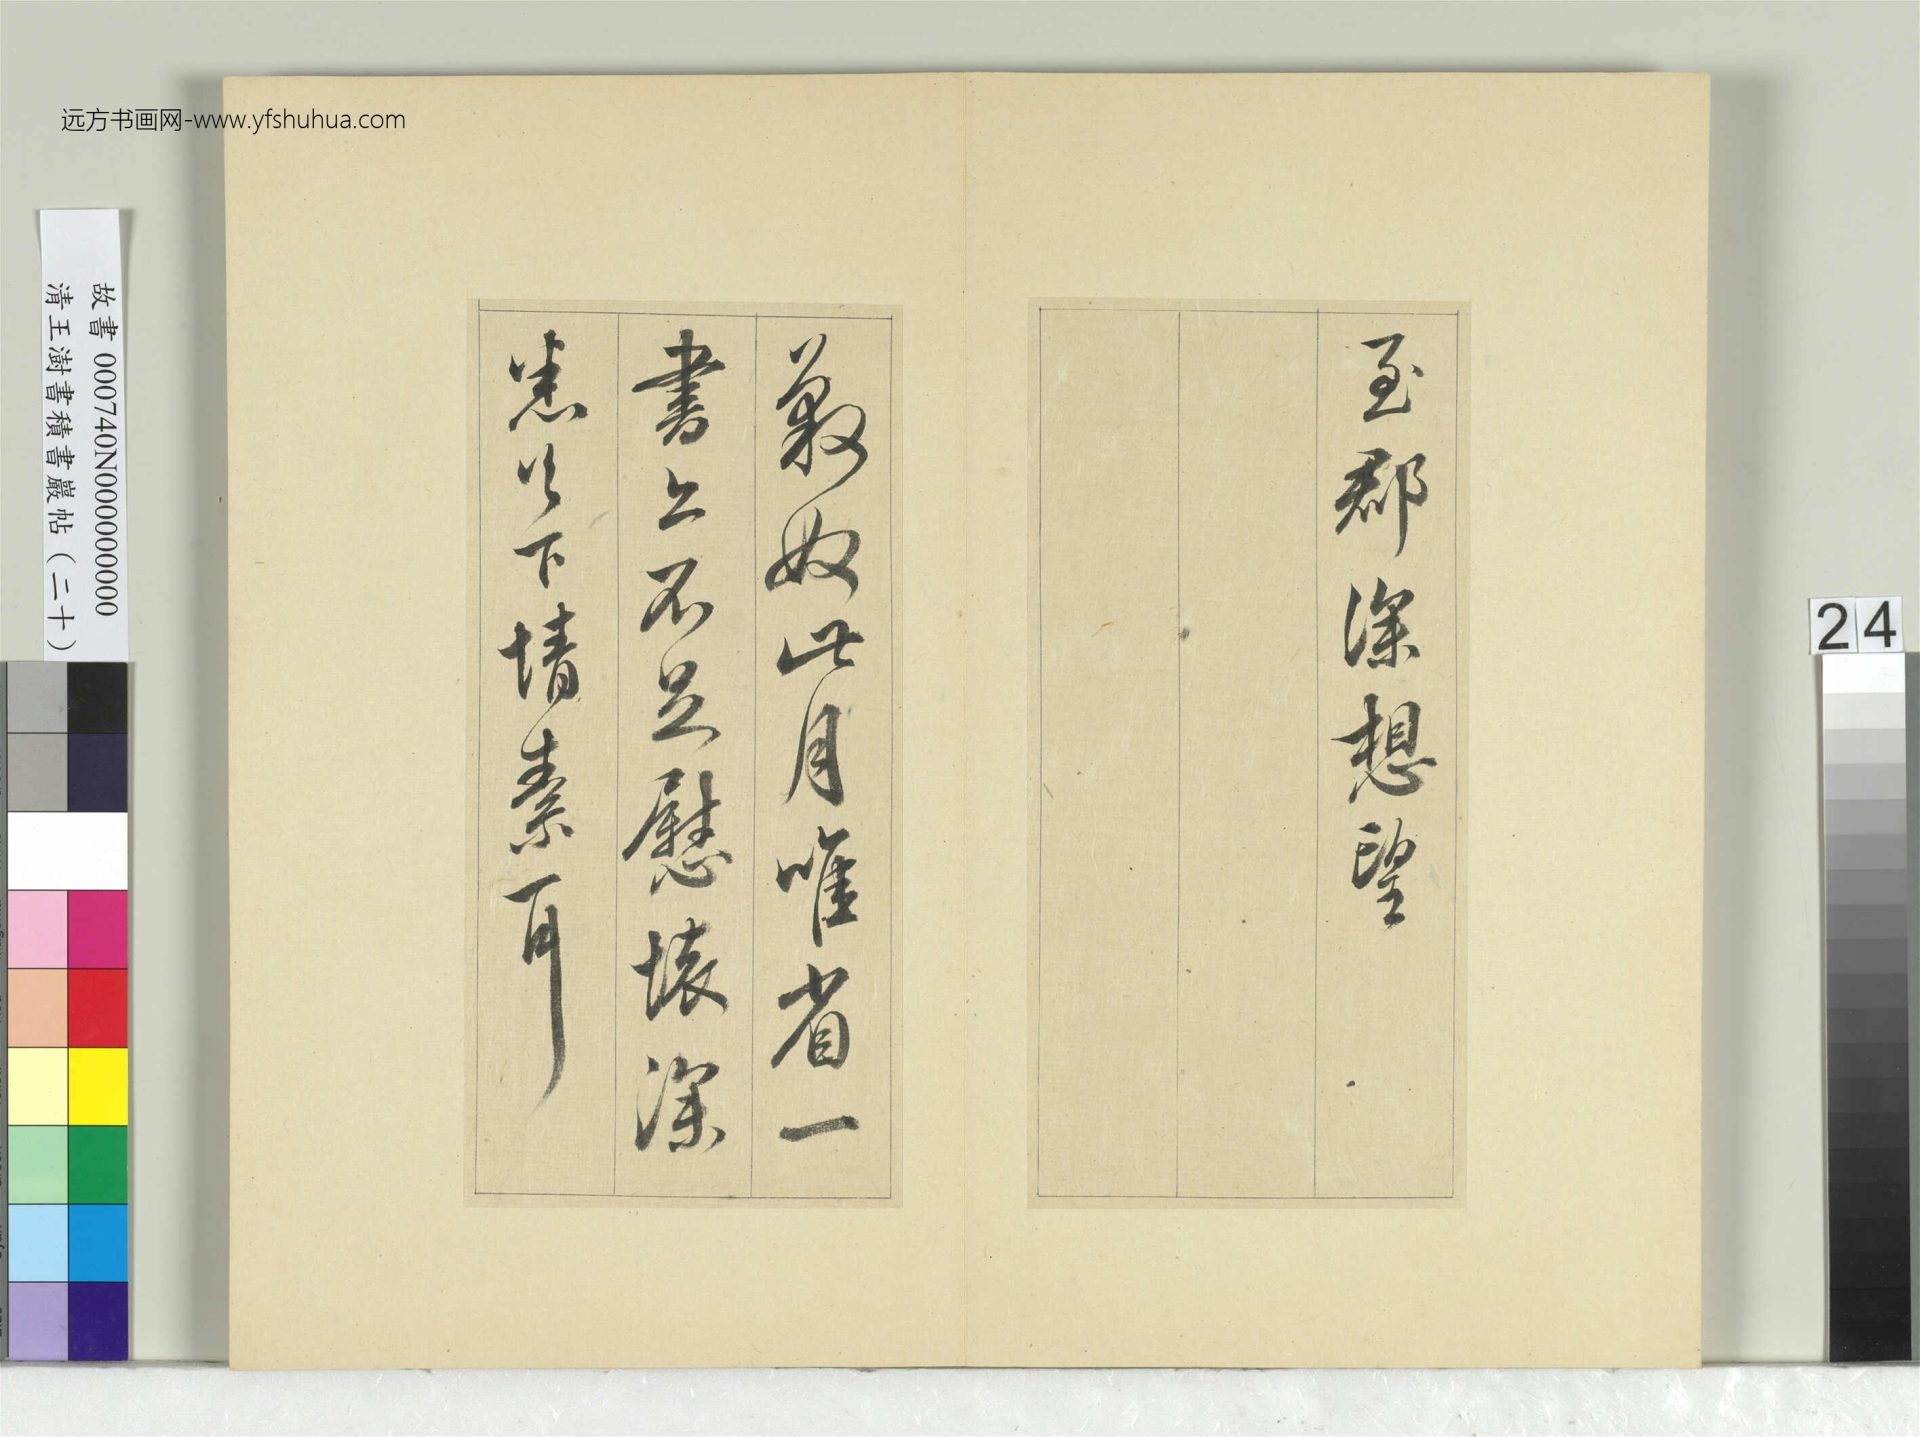 远方书画网-www.yfshuhua.com
故書 000740N000000000
清王澍書積書巖帖（二十）
24
至郡深想望
奴此月唯省一
書亦不足慰懷深
悉足下情素耳